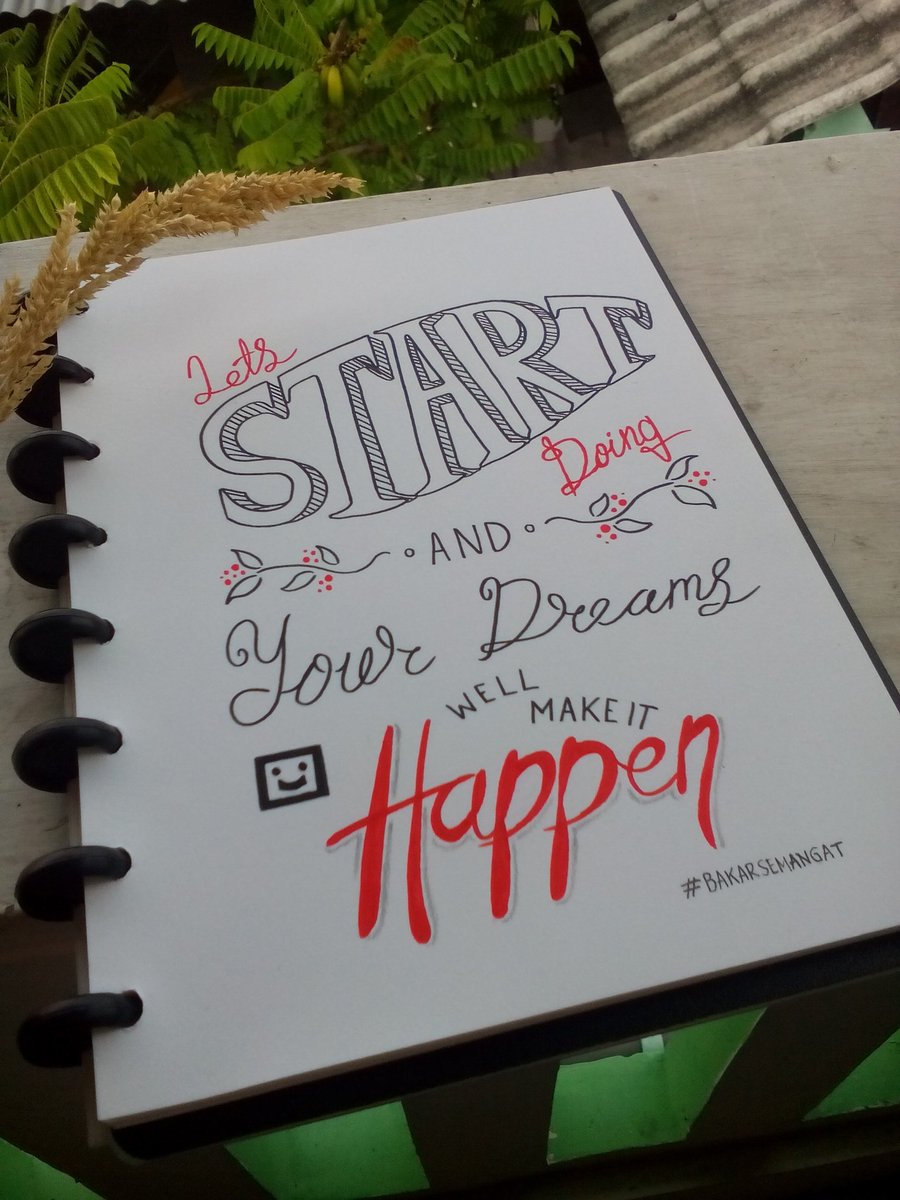 Lets
START
Doing
AND
Your Dreams
WELL
MAKE IT
Happen
#BAKARSEMANGAT